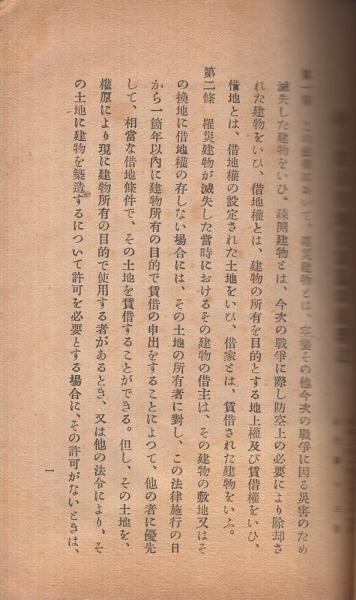 第一條 この法律において、罹災建物とは、空襲その他今次の戰爭に因る災害のため
滅失した建物をいひ、疎開建物とは、今次の戰爭に際し防空上の必要により除却さ
れた建物をいひ、借地權とは、建物の所有を目的とする地上權及び賃借權をいひ、
借地とは、借地權の設定された土地をいひ、借家とは、賃借された建物をいふ。
第二條 罹災建物が滅失した當時におけるその建物の借主は、その建物の敷地又はそ
の換地に借地權の存しない場合には、その土地の所有者に對し、この法律施行の日
から一箇年以内に建物所有の目的で賃借の申出をすることによつて、他の者に優先
して、相當な借地條件で、その土地を賃借することができる。但し、その土地を、
權原により現に建物所有の目的で使用する者があるとき、又は他の法令により、そ
の土地に建物を築造するについて許可を必要とする場合に、その許可がないときは、
一